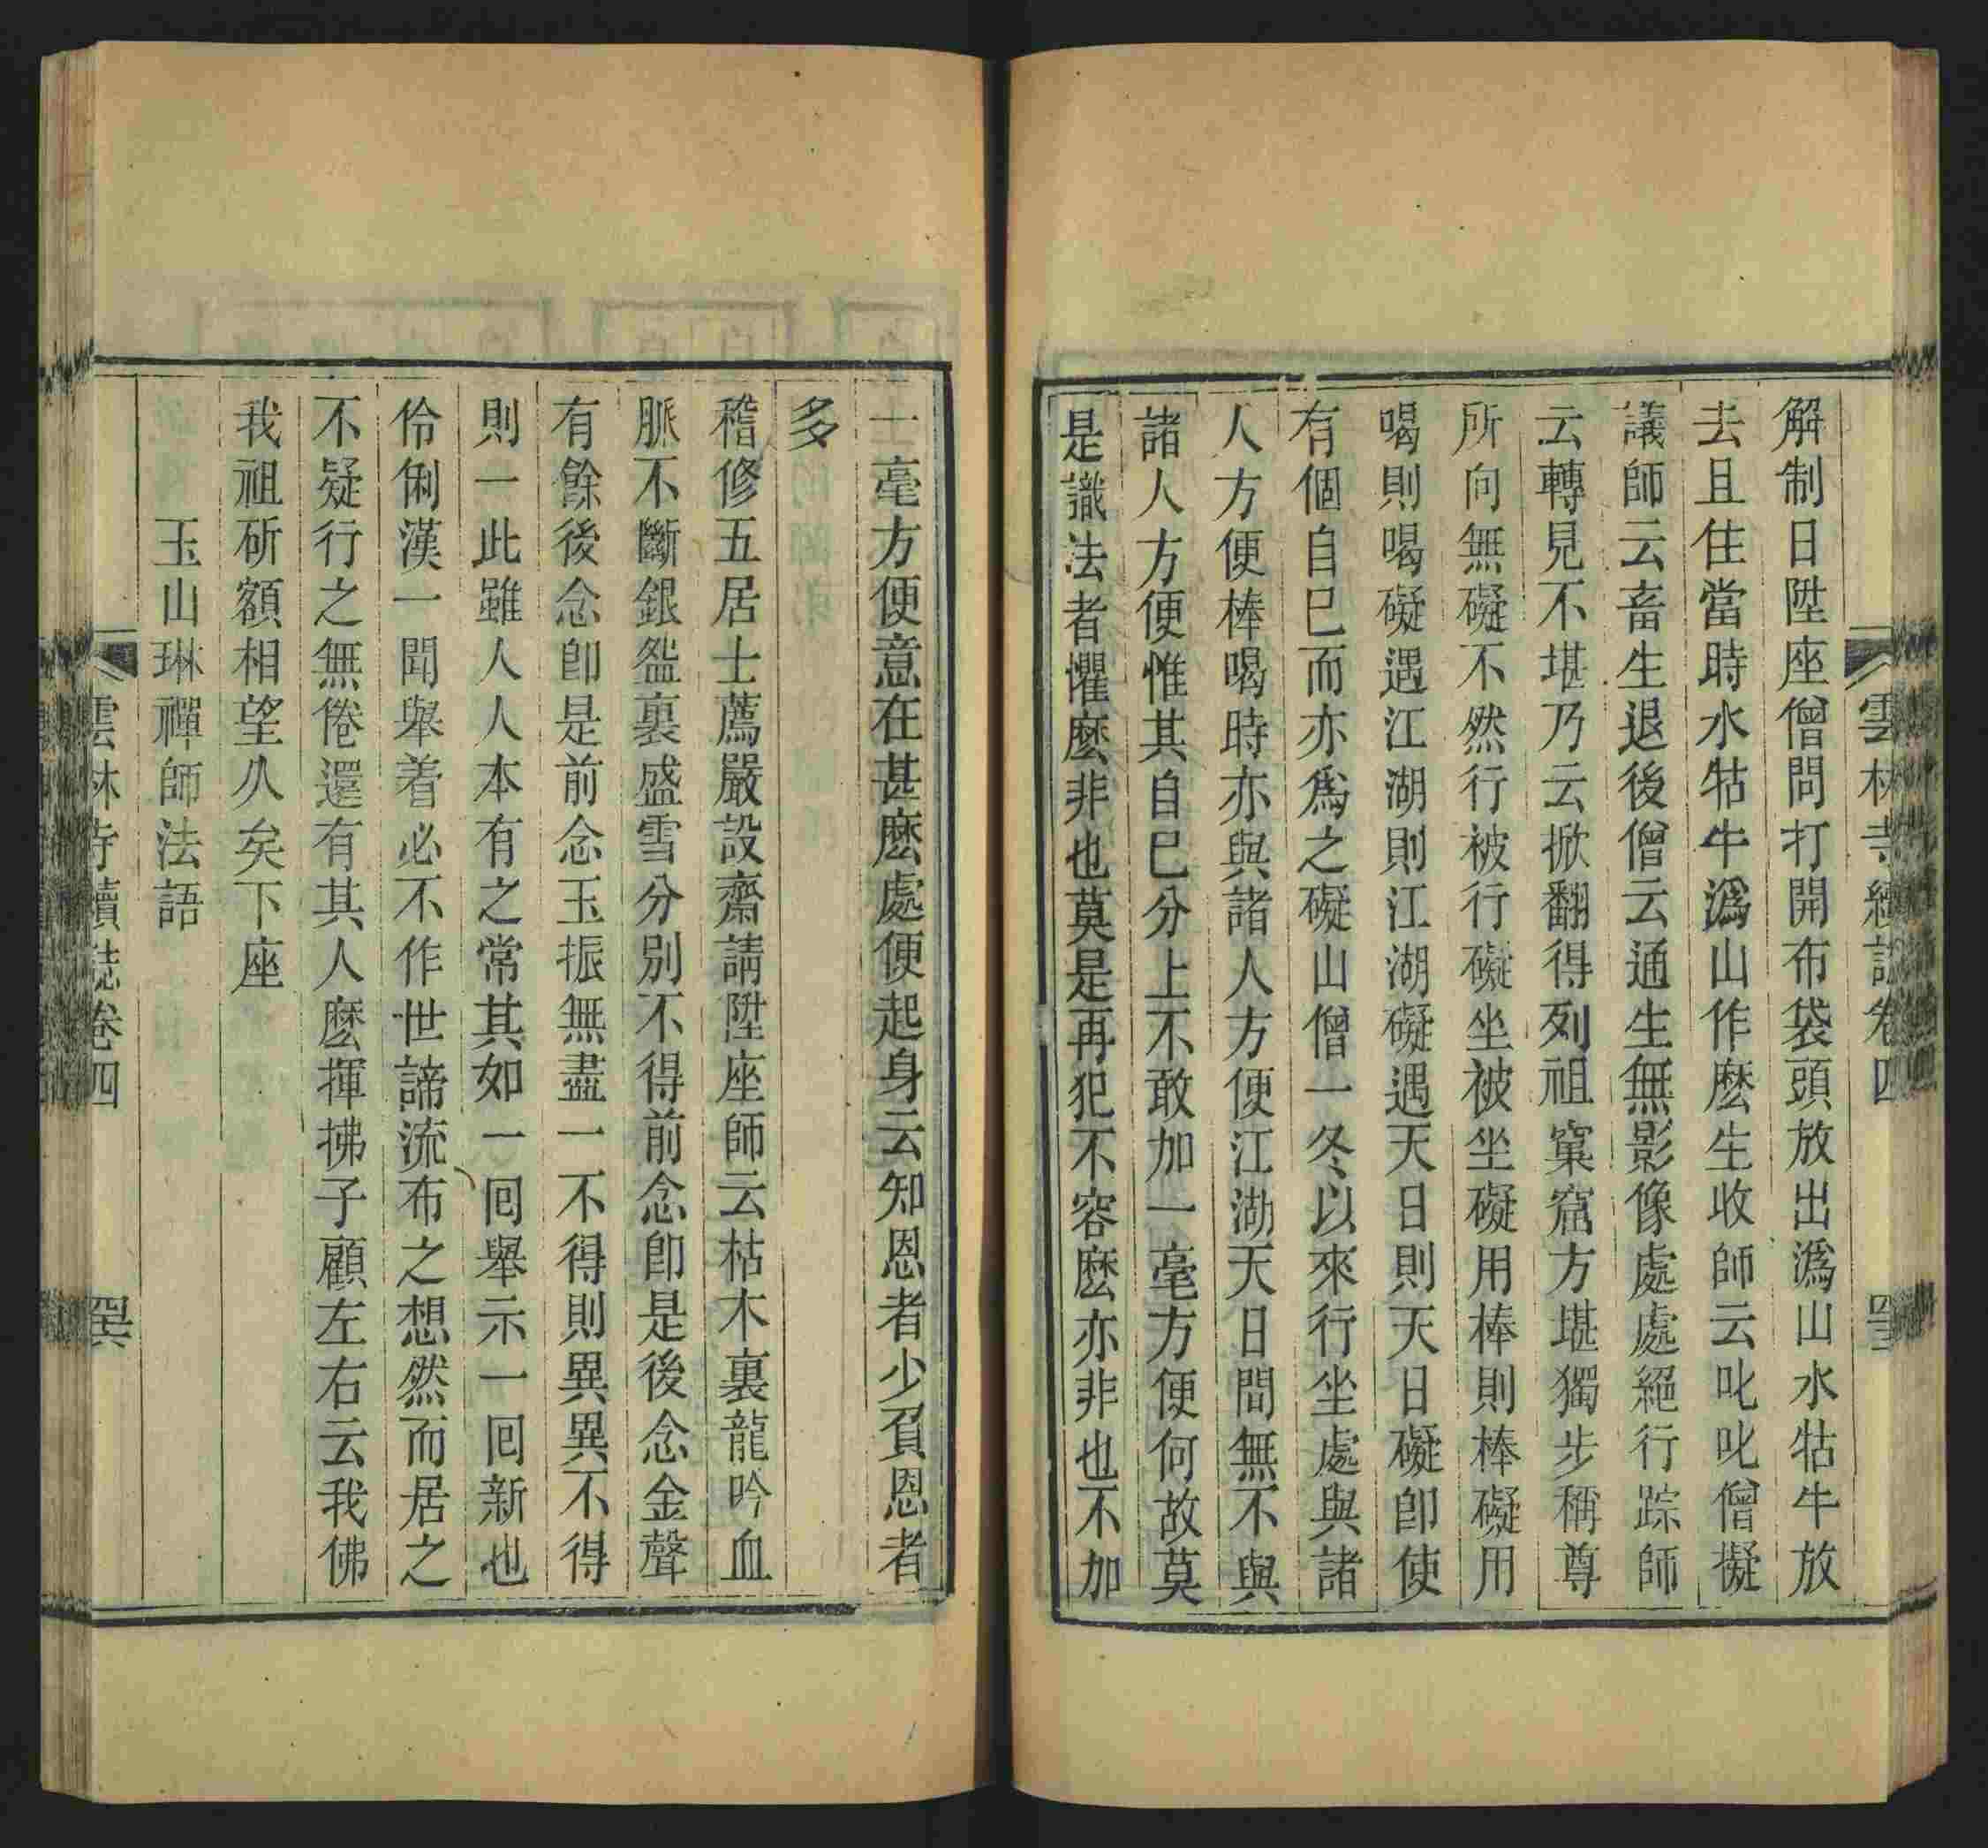 雲林寺續誌卷四
解制日陞座僧問打開布袋頭放出潙山水牯牛放
去且住當時水牯牛潙山作麽生收師云叱叱僧擬
議師云畜生退後僧云通生無影像處處絕行踪師
云轉見不堪乃云掀翻得列祖窠窟方堪獨步稱尊
所向無礙不然行被行礙坐被坐礙用棒則棒礙用
喝則喝礙遇江湖則江湖礙遇天日則天日礙卽使
有個自巳而亦爲之礙山僧一冬以來行坐處與諸
人方便棒喝時亦與諸人方便江湖天日間無不與
諸人方便惟其自巳分上不敢加一毫方便何故莫
是識法者懼麽非也莫是再犯不容麽亦非也不加
一毫方便意在甚麽處便起身云知恩者少負恩者
多
稽修五居士薦嚴設齋請陞座師云枯木裏龍吟血
脈不斷銀盌裏盛雪分別不得前念卽是後念金聲
有餘後念卽是前念玉振無盡一不得則異異不得
則一此雖人人本有之常其如一回舉示一回新也
伶俐漢一聞舉着必不作世諦流布之想然而居之
不疑行之無倦還有其人麽揮拂子顧左右云我佛
我祖斫額相望久矣下座
玉山琳禪師法語
雲林寺續誌卷四